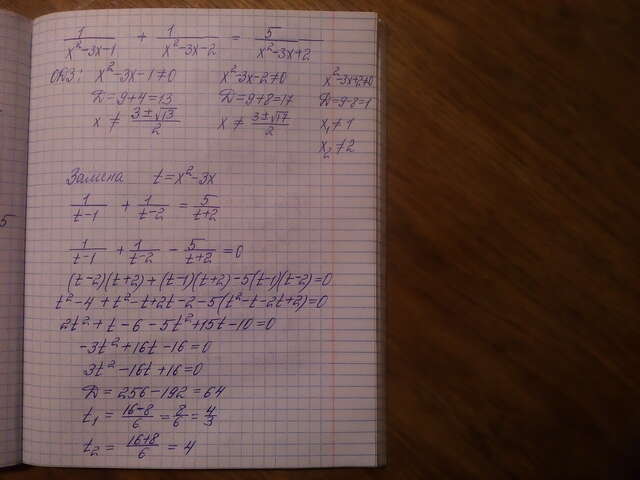 1/(x²-3x-1) + 1/(x²-3x-2) = 5/(x²-3x+2)
ОДЗ: x²-3x-1≠0 x²-3x-2≠0 x²-3x+2≠0
Д=9+4=13 Д=9+8=17 Д=9-8=1
x ≠ (3±√13)/2 x ≠ (3±√17)/2 x₁≠1
x₂≠2
Замена t=x²-3x
1/(t-1) + 1/(t-2) = 5/(t+2)
1/(t-1) + 1/(t-2) - 5/(t+2) = 0
(t-2)(t+2)+(t-1)(t+2)-5(t-1)(t-2)=0
t²-4+t²-t+2t-2-5(t²-t-2t+2)=0
2t²+t-6-5t²+15t-10=0
-3t²+16t-16=0
3t²-16t+16=0
Д=256-192=64
t₁ = (16-8)/6 = 8/6 = 4/3
t₂ = (16+8)/6 = 4
5